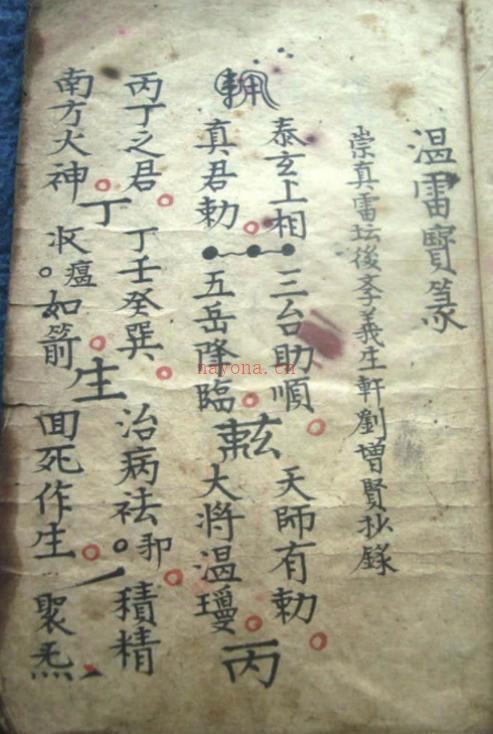 溫雷寶篆
崇真雷坛後斈義生軒劉增賢抄錄
泰玄上相 三台助順 天師有勅
真君勅 五岳降臨 大将溫瓊
丙
丙丁之君 丁壬癸巽 治病祛邪 積精
丁
生
南方火神 收瘟如箭 回死作生 聚炁
nayona.cn